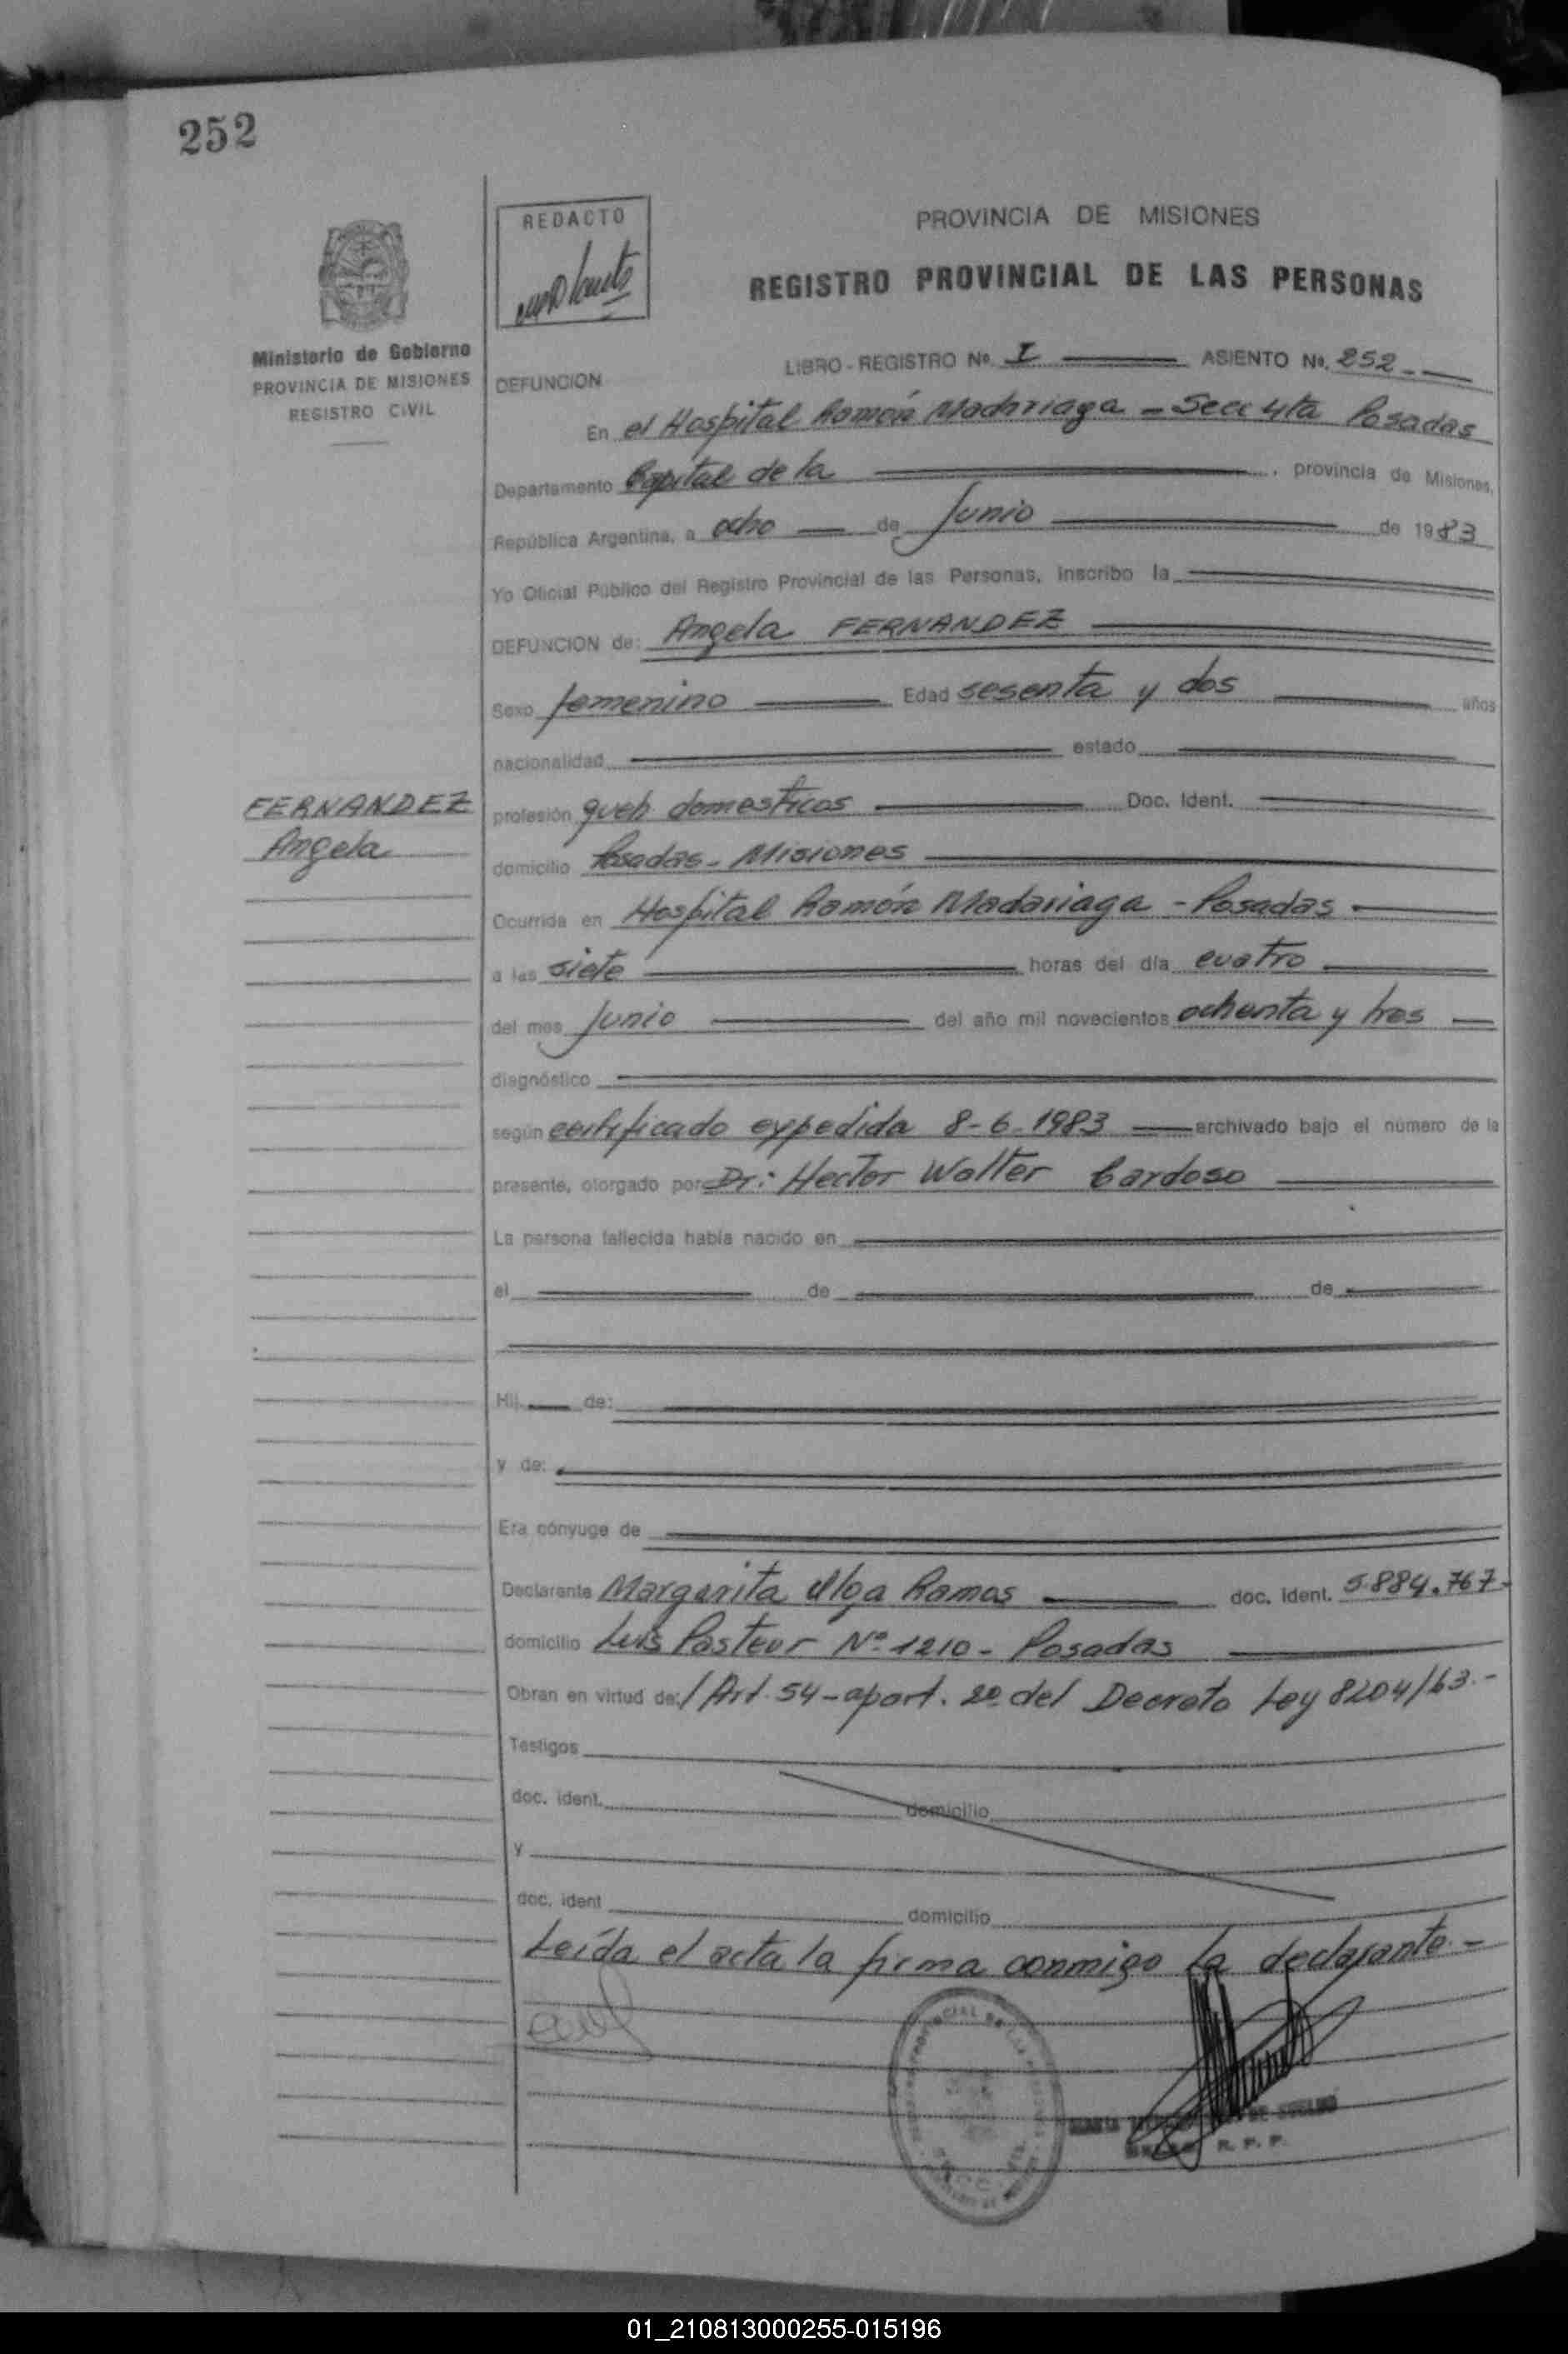 252
REDACTO
PROVINCIA DE MISIONES
REGISTRO PROVINCIAL DE LAS PERSONAS
Ministerio de Gobierno
PROVINCIA DE MISIONES
REGISTRO CIVIL
LIBRO - REGISTRO No. I ASIENTO No. 252
DEFUNCION
En el Hospital Ramón Madariaga - Secc 4ta Posadas
Departamento Capital de la , provincia de Misiones,
República Argentina, a ocho de Junio de 1983
Yo Oficial Público del Registro Provincial de las Personas, inscribo la
DEFUNCION de: Angela FERNANDEZ
Sexo femenino Edad sesenta y dos años
nacionalidad estado
FERNANDEZ
Angela
profesión queh. domesticos Doc. Ident.
domicilio Posadas - Misiones
Ocurrida en Hospital Ramón Madariaga - Posadas
a las siete horas del día cuatro
del mes Junio del año mil novecientos ochenta y tres
diagnóstico
según certificado expedida 8-6-1983 archivado bajo el número de la
presente, otorgado por Dr: Hector Walter Cardoso
La persona fallecida había nacido en
el de de
Hij de:
y de:
Era cónyuge de
Declarante Margarita Olga Ramos doc. ident. 5.884.767-
domicilio Luis Pasteur Nº 1210 - Posadas
Obran en virtud de: / Art. 54 - apart. 2º del Decreto Ley 8204/63.-
Testigos
doc. ident. domicilio
y
doc. ident domicilio
Leída el acta la firma conmigo la declarante -
R. P. P.
01_210813000255-015196